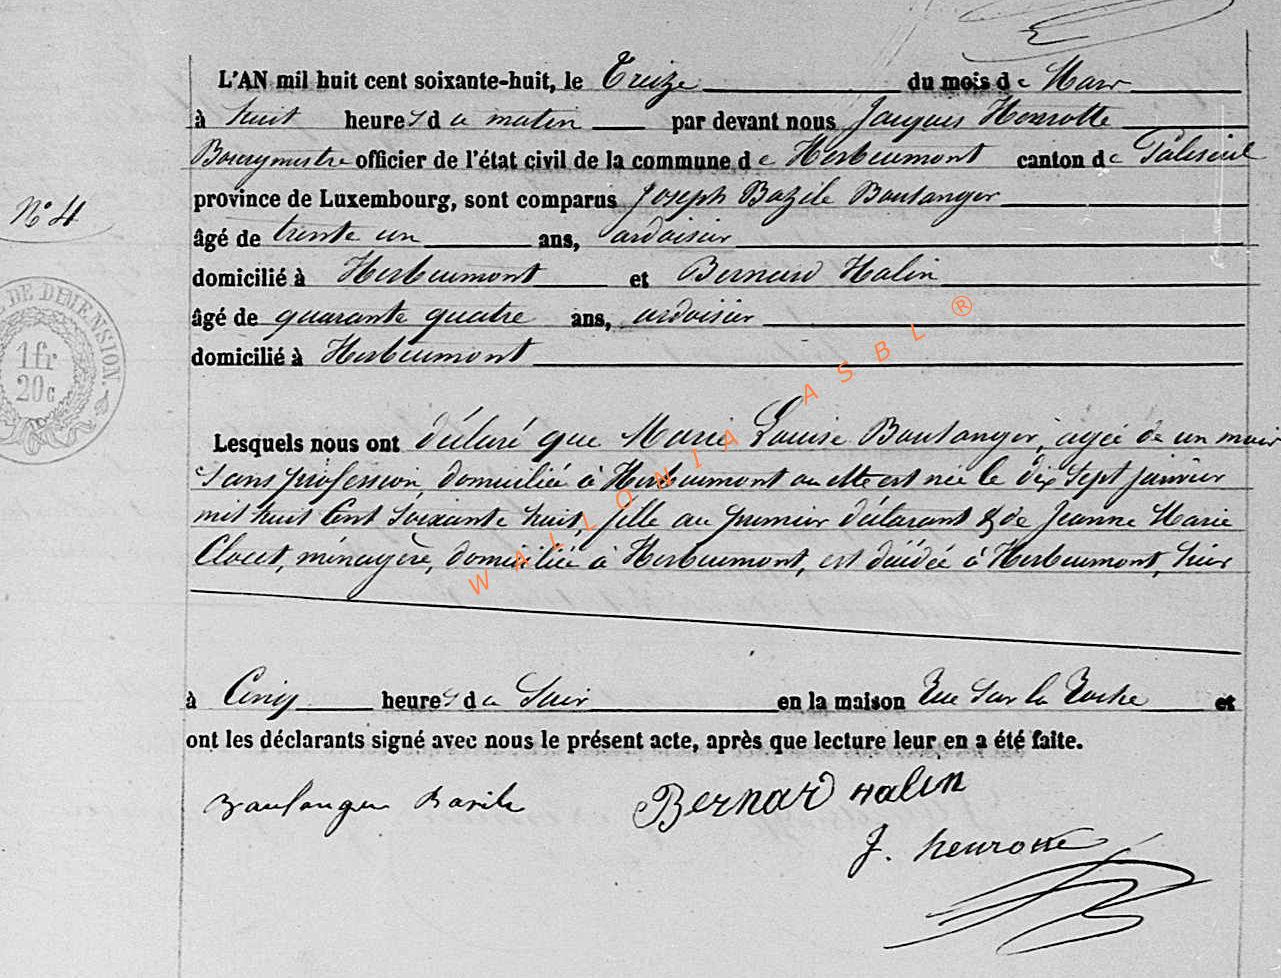 L'AN mil huit cent soixante-huit, le Treize du mois de Mars
à huit heures du matin par devant nous Jacques Henrotte
Bourgmestre officier de l'état civil de la commune de Herbeumont canton de Paliseul
province de Luxembourg, sont comparus Joseph Bazile Boulanger
N° 4
âgé de trente un ans, ardoisier
domicilié à Herbeumont et Bernard Halin
âgé de quarante quatre ans, ardoisier
domicilié à Herbeumont
DE DIMENSION.
1fr
20c
Lesquels nous ont déclaré que Marie Louise Boulanger, agée de un mois
sans profession, domiciliée à Herbeumont ou elle est née le dix sept janvier
mil huit cent soixante huit, fille du premier déclarant & de Jeanne Marie
ménagère, domiciliée à Herbeumont, est décédée à Herbeumont, hier
à Cinq heures du Soir en la maison Rue Sur la Roche et
ont les déclarants signé avec nous le présent acte, après que lecture leur en a été faite.
Boulanger Bazile Bernard Halin
J. henrotte
WALLONIA ASBL ®